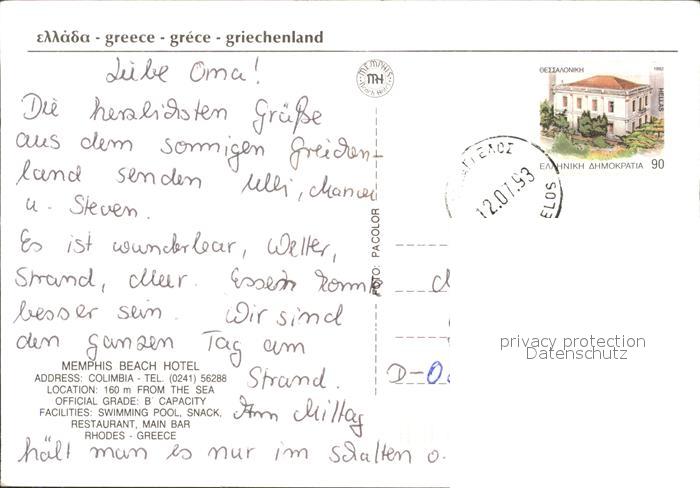 ελλάδα - greece - gréce - griechenland
Liebe Oma!
Die herzlichsten Grüße
aus dem sonnigen Griechen-
land senden Ulli,
u. Steven.
Es ist wunderbar, Wetter,
Strand, Meer. Essen könnte
besser sein. Wir sind
den ganzen Tag am
Strand.
Am Mittag
hält man es nur im Schatten o.
MEMPHIS BEACH HOTEL
ADDRESS: COLIMBIA - TEL. (0241) 56288
LOCATION: 160 m FROM THE SEA
OFFICIAL GRADE: B' CAPACITY
FACILITIES: SWIMMING POOL, SNACK,
RESTAURANT, MAIN BAR
RHODES - GREECE
MEMPHIS
MH
Beach Hotel
FOTO: PACOLOR
ΘΕΣΣΑΛΟΝΙΚΗ 1992
HELLAS
ΕΛΛΗΝΙΚΗ ΔΗΜΟΚΡΑΤΙΑ 90
ΓΕΛΟΣ
12.07.93
ELOS
D-0
privacy protection
Datenschutz